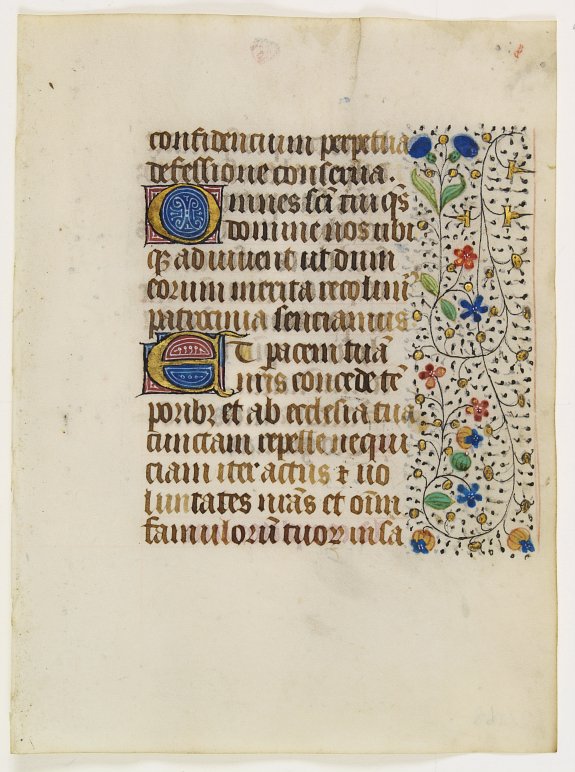 confidencium perpetua
defessione conserua
Omnes scī tui q̄s
domine nos ubi
q̄ adiuuent ut dum
eorum merita recolim᷒
patrocinia senciamus
Et pacem tuā
nr̄is concede tē
poribꝫ et ab ecclesia tua
cunctam repelle nequi
ciam iter actus ⁊ uo
luntates nr̄as et oīm
famulorū tuoꝝ in sa